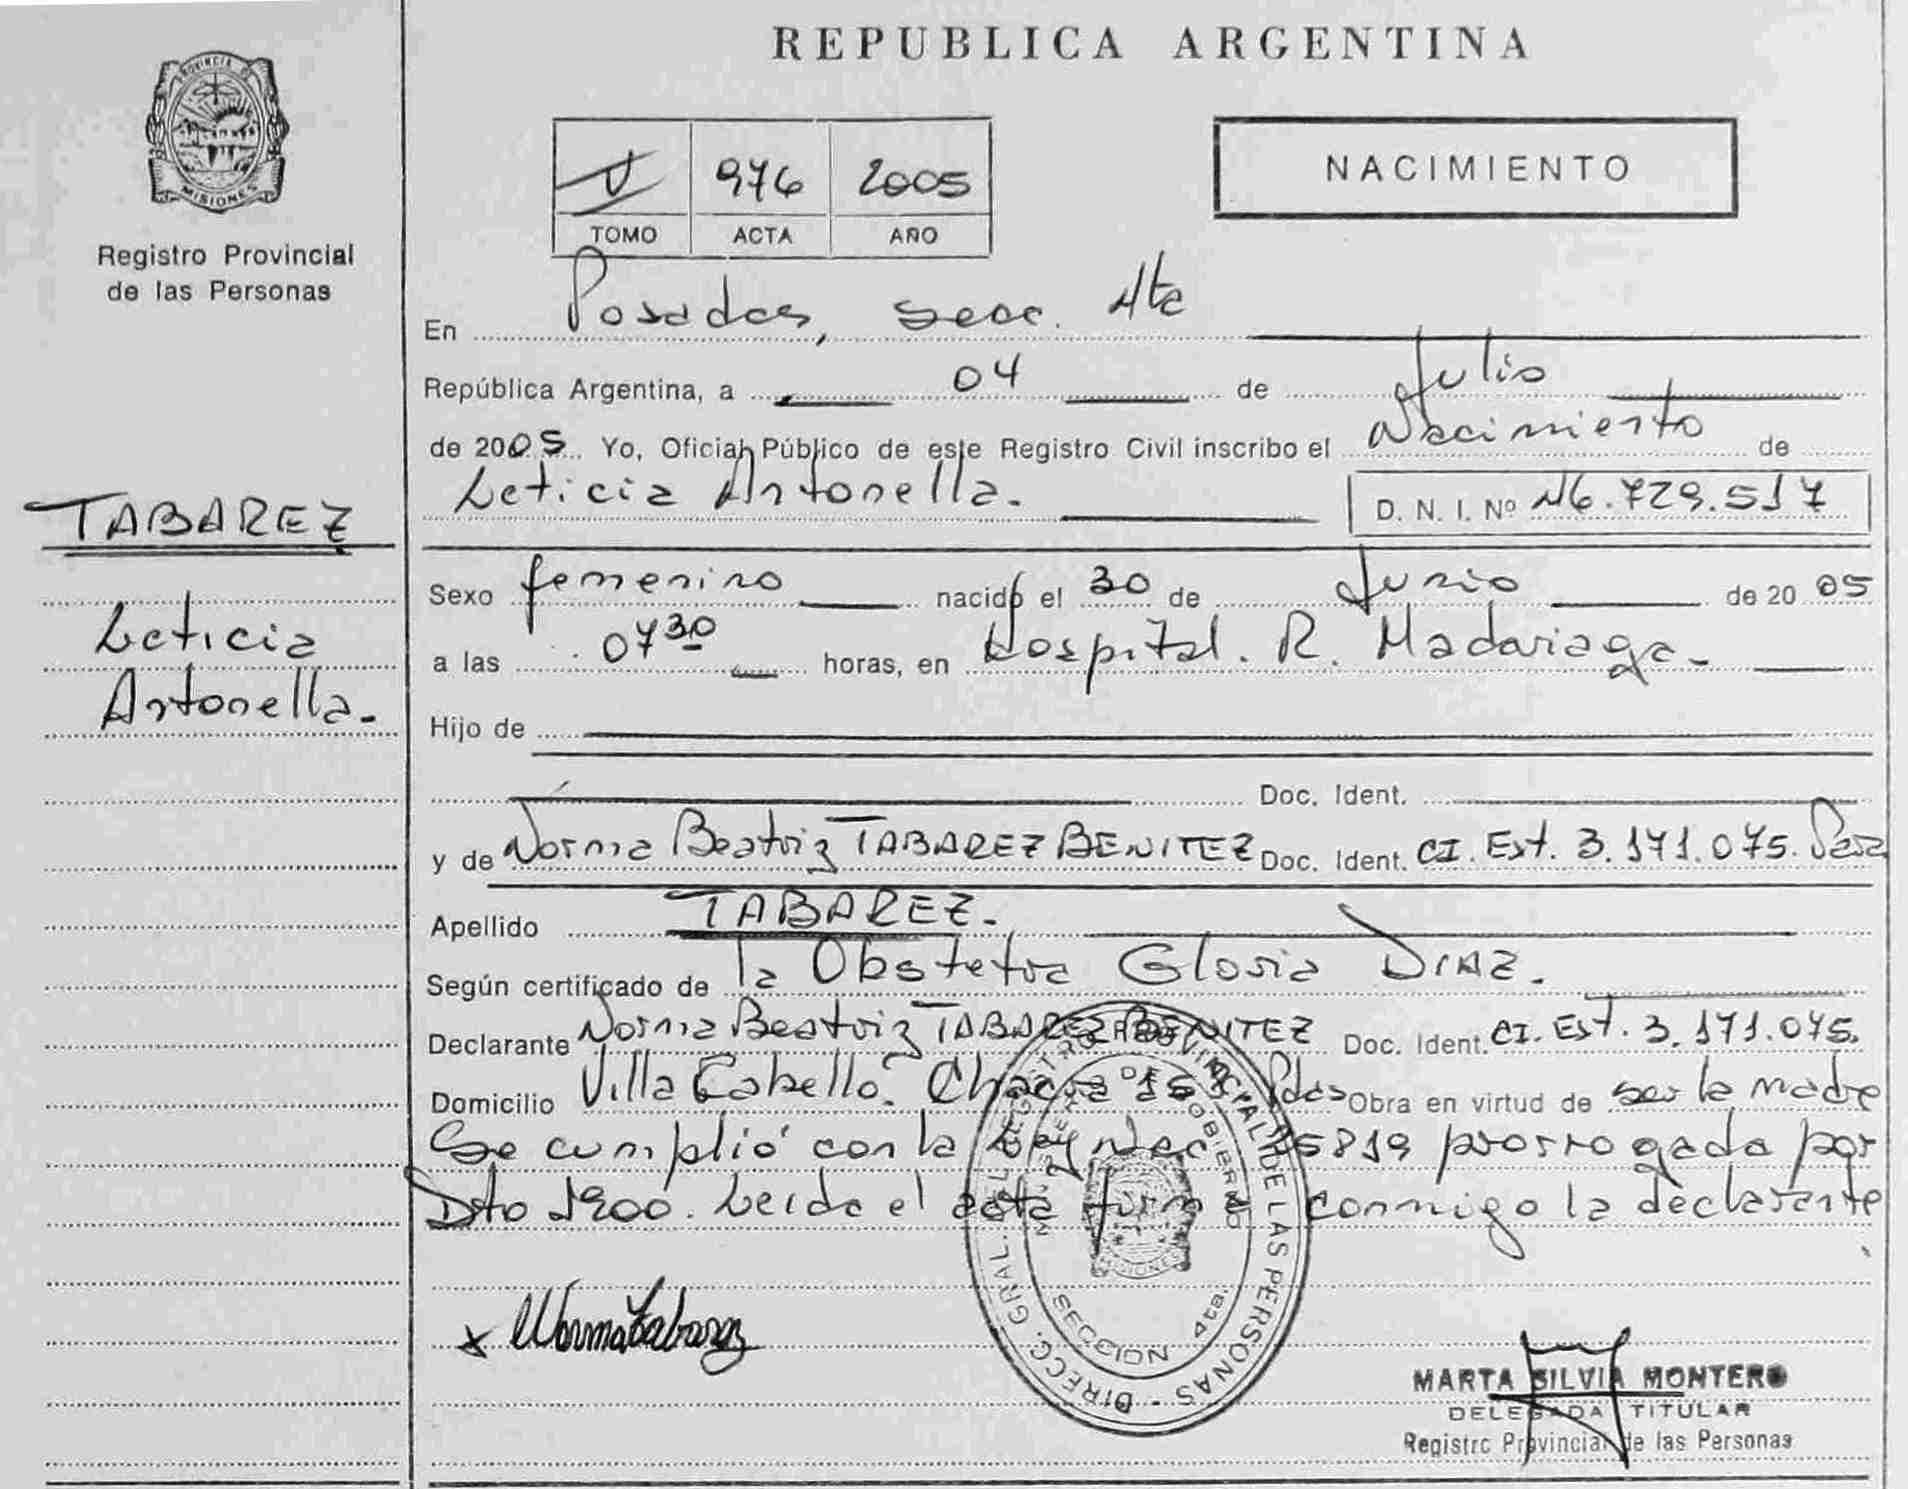 REPUBLICA ARGENTINA
PROVINCIA DE
MISIONES
Registro Provincial
de las Personas
976 2005
TOMO ACTA AÑO
NACIMIENTO
En Posadas, secc. 4ta
República Argentina, a 04 de Julio
de 2005 Yo, Oficial Público de este Registro Civil inscribo el Nacimiento de
Leticia Antonella. D. N. I. Nº 46.729.517
TABAREZ
Leticia
Antonella.-
Sexo femenino nacido el 30 de Junio de 20 05
a las 07 30 horas, en Hospital. R. Madariaga.-
Hijo de
Doc. Ident.
y de Norma Beatriz TABAREZ BENITEZ Doc. Ident. CI. Ext. 3.171.075.
Apellido TABAREZ.-
Según certificado de la Obstetra Gloria DIAZ.-
Declarante Norma Beatriz TABAREZ BENITEZ Doc. Ident. CI. Ext. 3.171.075.
Domicilio Villa Cabello. Pdas Obra en virtud de ser la madre
Se cumplió con la Ley Nac 25819 prorrogada por
Dto 1900. Leida el acta firma conmigo la declarante
x Norma Tabarez
DIRECC. GRAL. DEL REGISTRO PROVINCIAL DE LAS PERSONAS
GOBIERNO
MISIONES
SECCION 4ta.
MARTA SILVIA MONTERO
DELEGADA TITULAR
Registro Provincial de las Personas